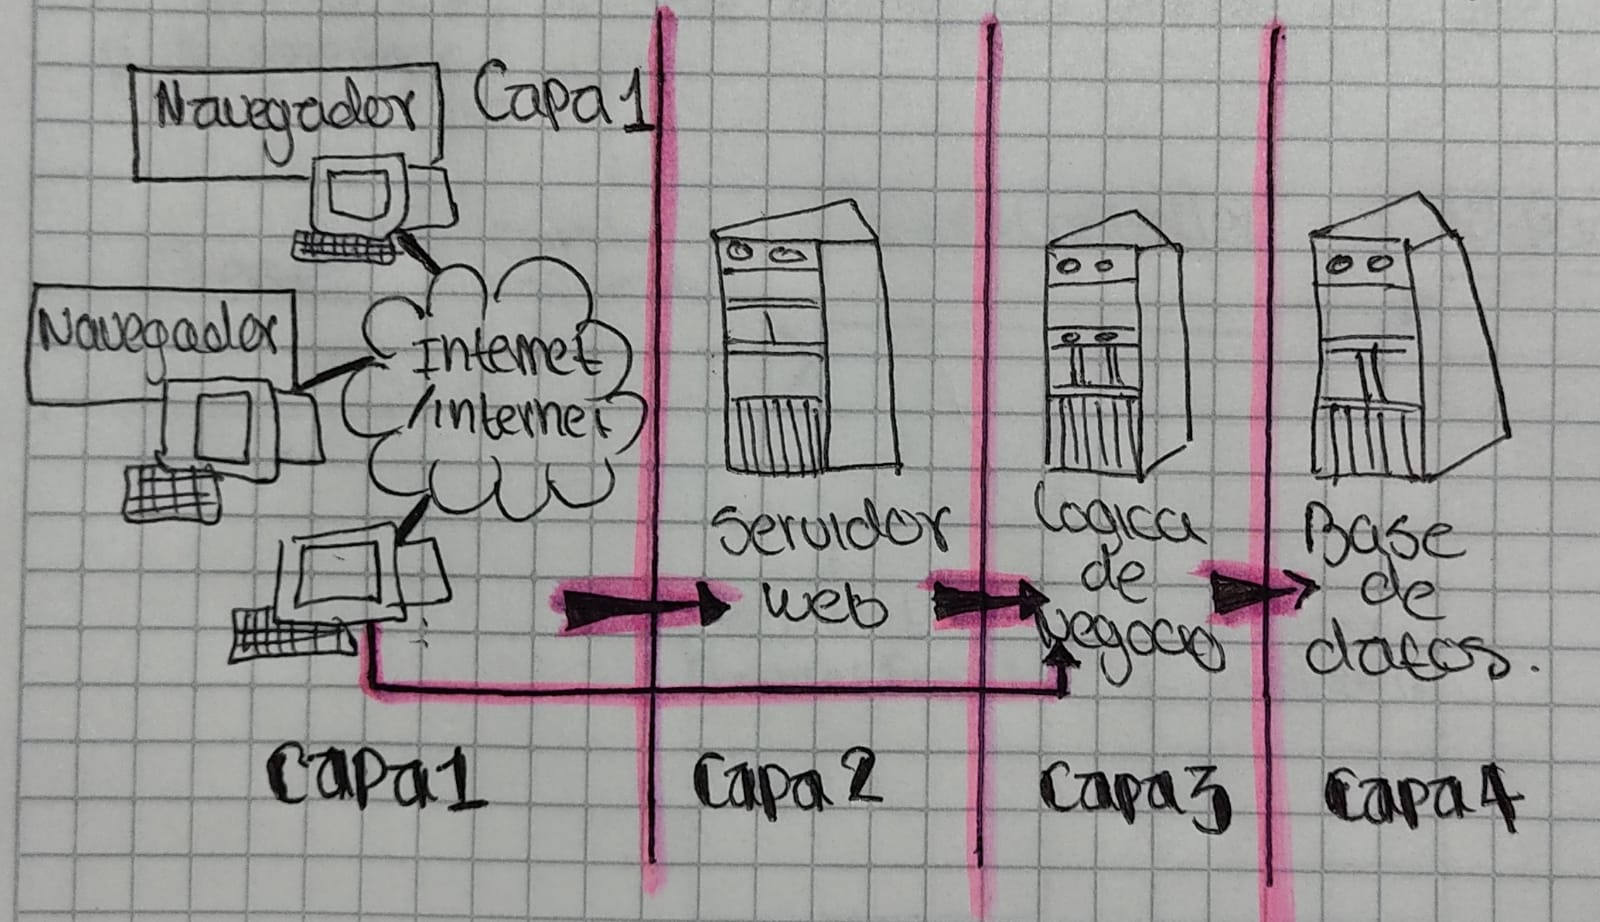 Navegador
Capa 1
Navegador
Internet
/internet
Servidor
web
Logica
de
Negocio
Base
de
datos.
Capa 1
Capa 2
Capa 3
Capa 4